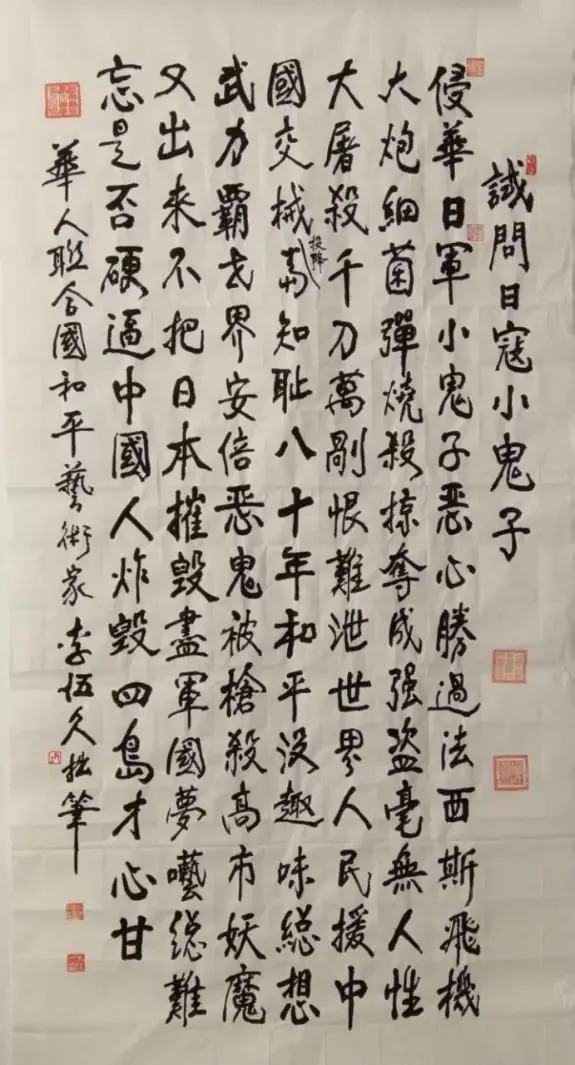 誠問日寇小鬼子
侵華日軍小鬼子恶心勝過法西斯飛機
大炮細菌彈燒殺掠奪成强盗毫無人性
大屠殺千刀萬剮恨難泄世界人民援中
國交械投降知耻八十年和平没趣味總想
武力霸世界安倍恶鬼被槍殺高市妖魔
又出来不把日本摧毁盡軍國夢囈總難
忘是否硬逼中國人炸毁四島才心甘
華人联合國和平藝術家李伍久拙筆